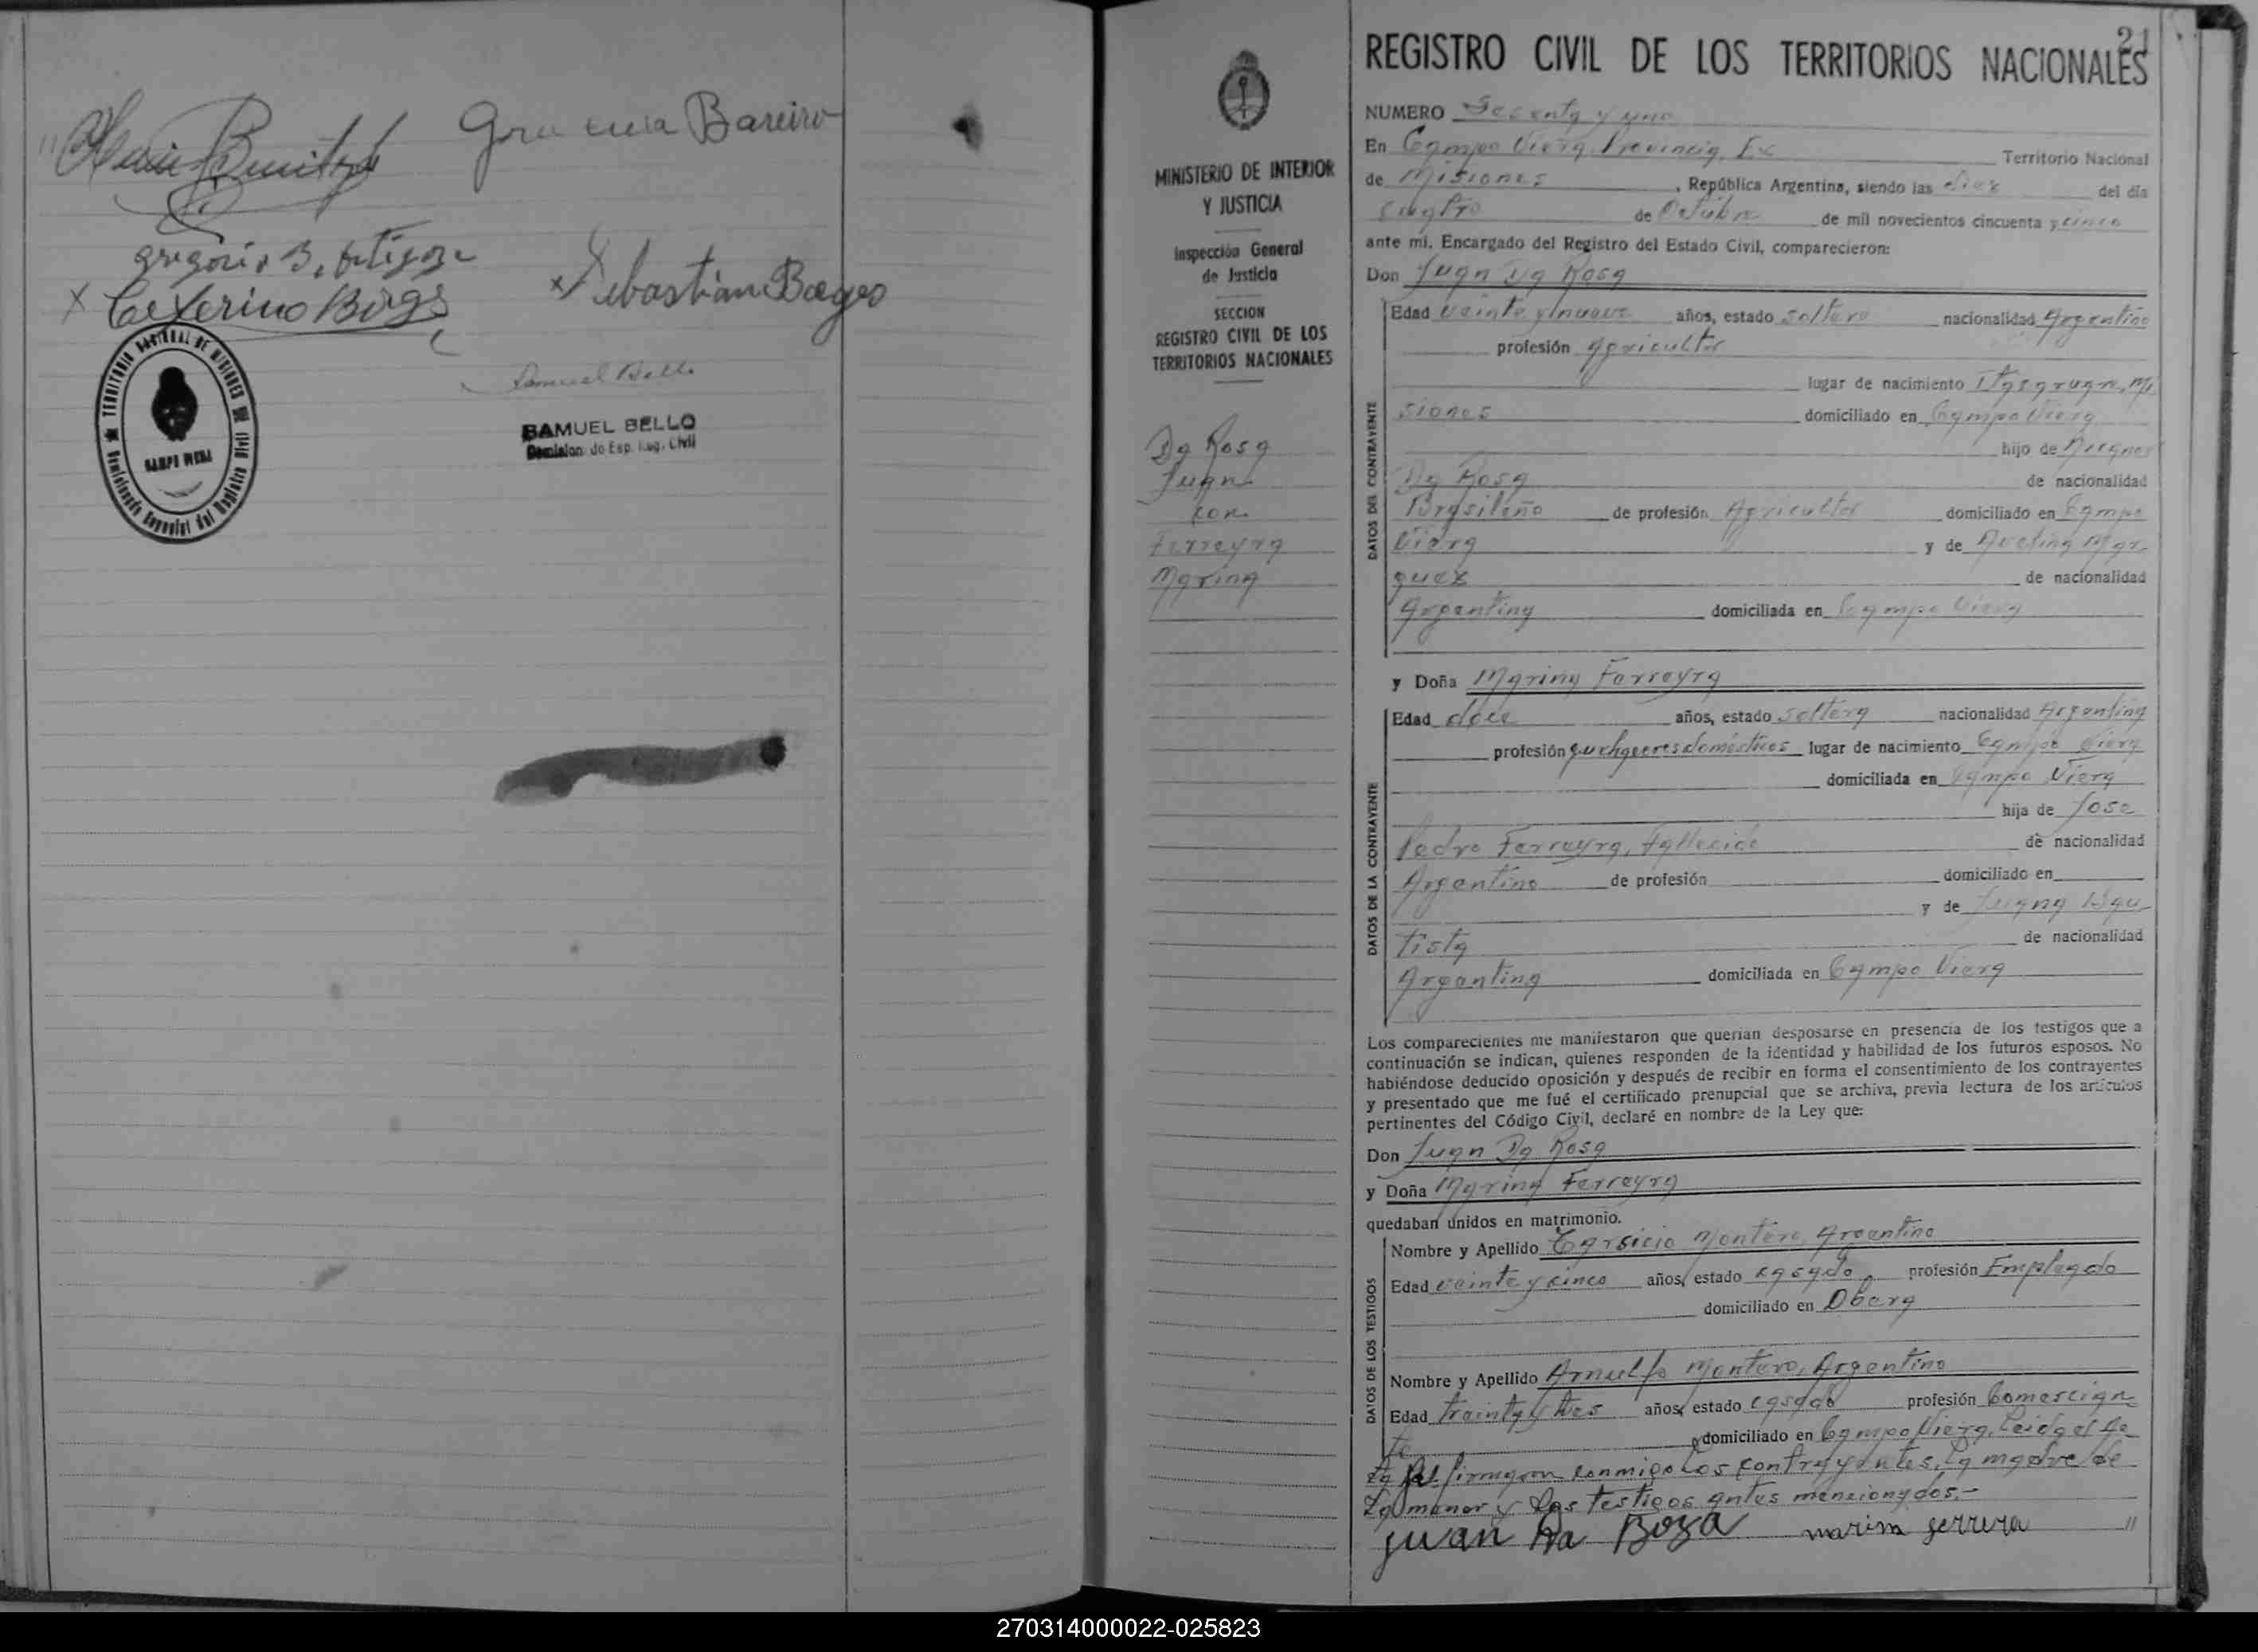 Gra ciela Bareiro
Benitez
Gregorio B. Artigoza
x Ceferino Borges
x Sebastian Borges
Samuel Bello
SAMUEL BELLO
Comision do Esp. Reg. Civil
TERRITORIO NACIONAL DE MISIONES
CAMPO VIERA
Comisionado Especial del Registro Civil
21
REGISTRO CIVIL DE LOS TERRITORIOS NACIONALES
MINISTERIO DE INTERIOR
Y JUSTICIA
Inspección General
de Justicia
SECCION
REGISTRO CIVIL DE LOS
TERRITORIOS NACIONALES
Da Rosa
Juan
con
Ferreyra
Marina
NUMERO Sesenta y uno
En Campo Viera, Provincia, Ex Territorio Nacional
de Misiones, República Argentina, siendo las diez del día
cuatro de Octubre de mil novecientos cincuenta y cinco
ante mi. Encargado del Registro del Estado Civil, comparecieron:
Don Juan Da Rosa
DATOS DEL CONTRAYENTE
Edad veinte y nueve años, estado soltero nacionalidad Argentino
profesión Agricultor
lugar de nacimiento Itacaruare, Mi
siones domiciliado en Campo Viera
hijo de
Da Rosa de nacionalidad
Brasileño de profesión Agricultor domiciliado en Campo
Viera y de Avelina Mar
quez de nacionalidad
Argentina domiciliada en Campo Viera
y Doña Marina Ferreyra
DATOS DE LA CONTRAYENTE
Edad doce años, estado soltera nacionalidad Argentina
profesión quehaceres domésticos lugar de nacimiento Campo Viera
domiciliada en Campo Viera
hija de Jose
Pedro Ferreyra, Fallecido de nacionalidad
Argentino de profesión domiciliado en
y de Juana Bau
tista de nacionalidad
Argentina domiciliada en Campo Viera
Los comparecientes me manifestaron que querian desposarse en presencia de los testigos que a
continuación se indican, quienes responden de la identidad y habilidad de los futuros esposos. No
habiéndose deducido oposición y después de recibir en forma el consentimiento de los contrayentes
y presentado que me fué el certificado prenupcial que se archiva, previa lectura de los articulos
pertinentes del Código Civil, declaré en nombre de la Ley que:
Don Juan Da Rosa
y Doña Marina Ferreyra
quedaban unidos en matrimonio.
DATOS DE LOS TESTIGOS
Nombre y Apellido Tarsicio Montero, Argentino
Edad veinte y cinco años, estado casado, profesión Empleado
domiciliado en Obera
Nombre y Apellido Arnulfo Montero, Argentino
Edad treinta y tres años, estado casado profesión Comercian
te domiciliado en Campo Viera. Leida el Ac
ta firmaron conmigo los contrayentes, la madre de
la menor y los testigos antes mencionados.-
juan Da Roza marina ferrera //
270314000022-025823